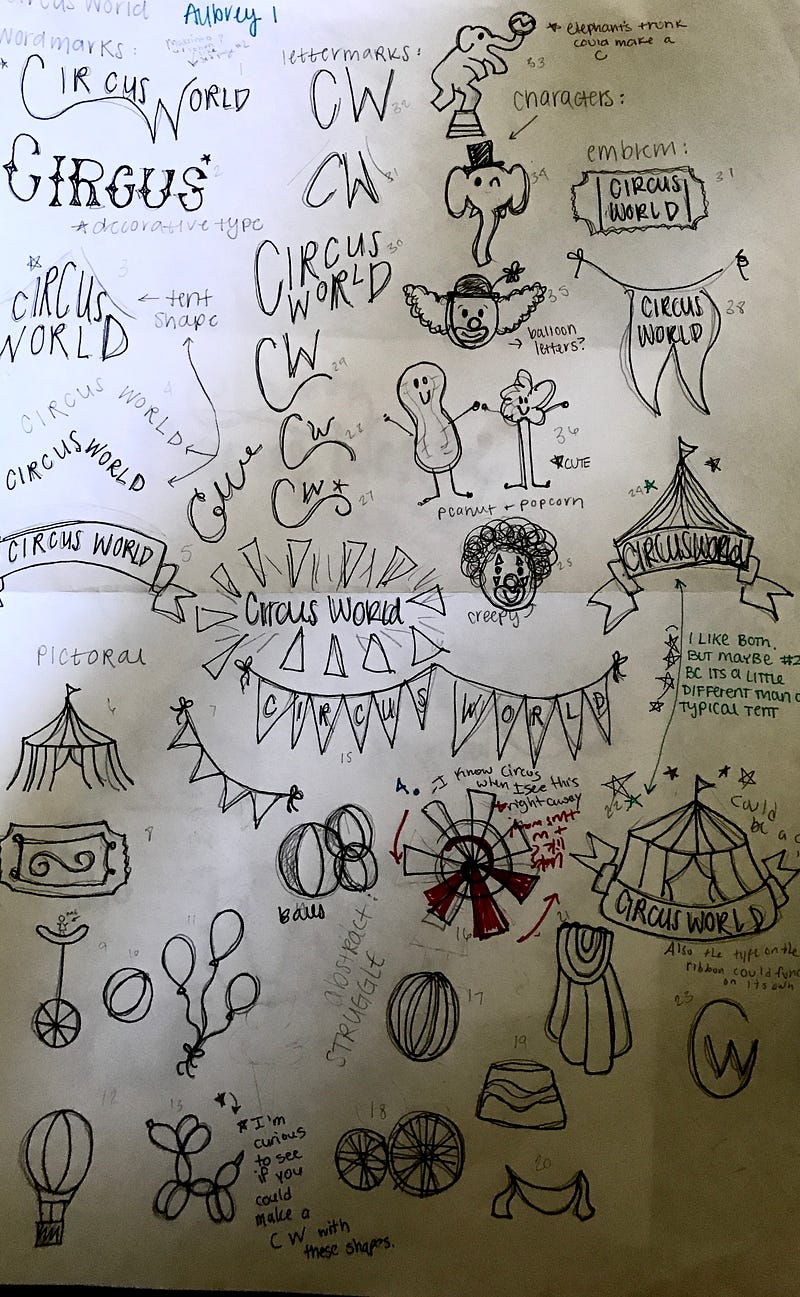 Circus World
Aubrey 1
Wordmarks:
1
CIRCUS WORLD
CIRCUS
2
*decorative type
3
CIRCUS
WORLD
← tent
shape
4
CIRCUS WORLD
CIRCUS WORLD
CIRCUS WORLD
5
lettermarks:
CW
32
CW
31
CIRCUS
WORLD
30
CW
29
CW
28
CW
27
Circus World
33
* elephant's trunk
could make a
C
characters:
34
35
→ balloon
letters?
36
*CUTE
peanut + popcorn
25
creepy
emblem:
37
CIRCUS
WORLD
CIRCUS
WORLD
38
24
CIRCUS WORLD
I LIKE BOTH.
BUT MAYBE #2
BC ITS A LITTLE
DIFFERENT THAN a
TYPICAL TENT
PICTORAL
6
7
CIRCUS WORLD
15
8
Balls
A.
I know circus
when I see this
right away
16
22
Could
be a
CIRCUS WORLD
Also the type on the
ribbon could func
on its own
9
10
11
abstract:
STRUGGLE
17
21
23
CW
12
13
* I'm
curious
to see
if you
could
make a
CW with
these shapes.
18
19
20